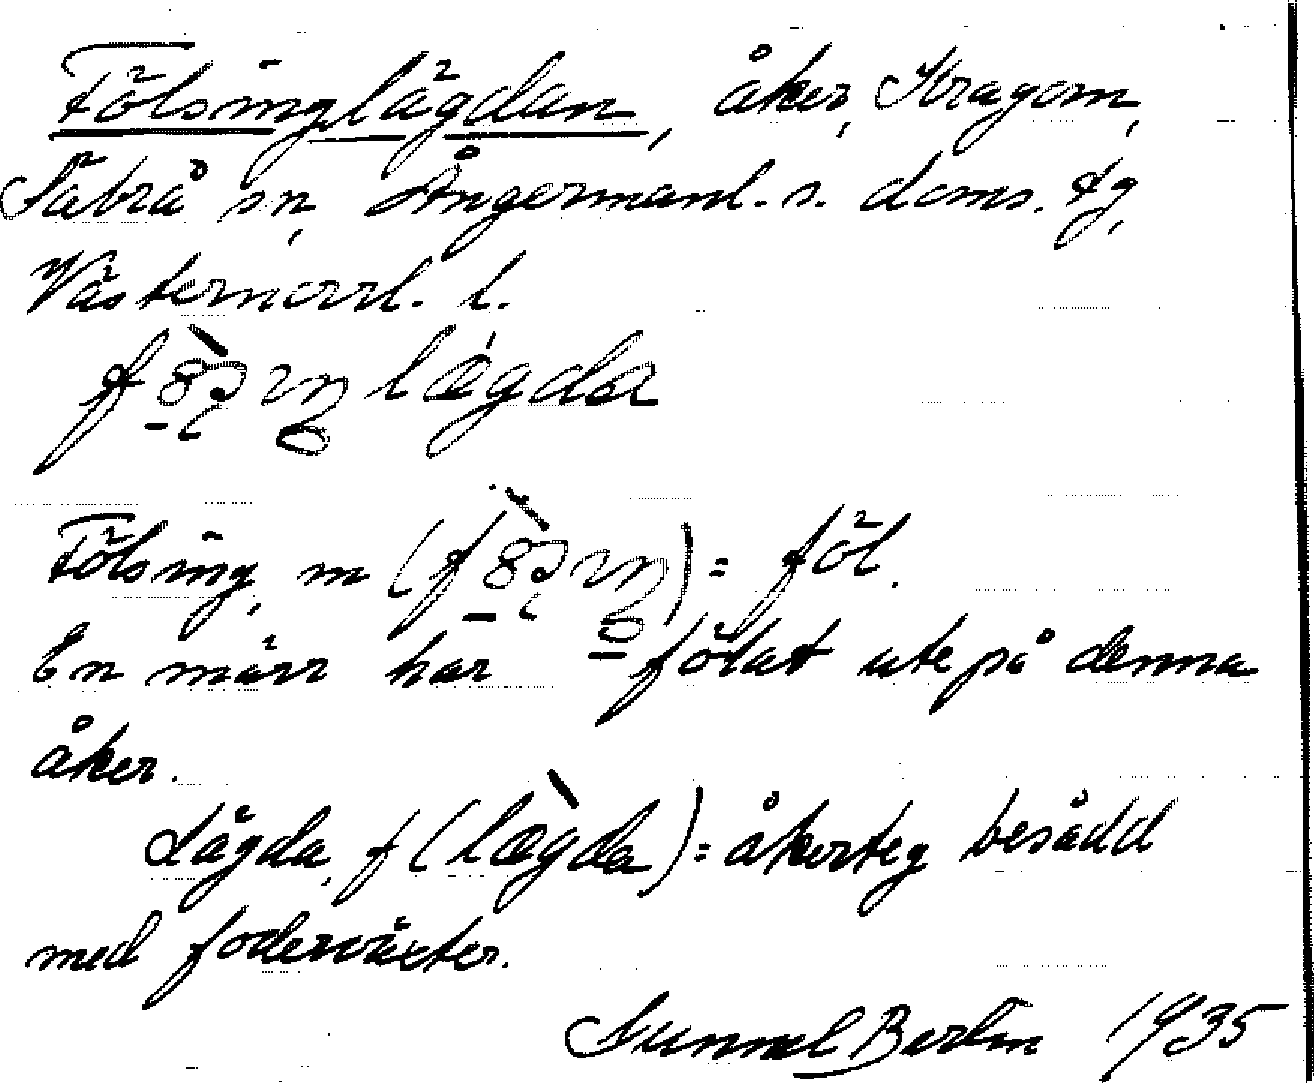 Fölsinglägdan, åker, Kragom,
Säbrå sn, Ångermanl. s. doms. tg,
Västernorrl. l.
lægda
Fölsing, m = föl.
En märr har fölat ute på denna
åker.
Lägda, f (lægda) = åkerteg besådd
med foderväxter.
Gunnel Berlin 1935